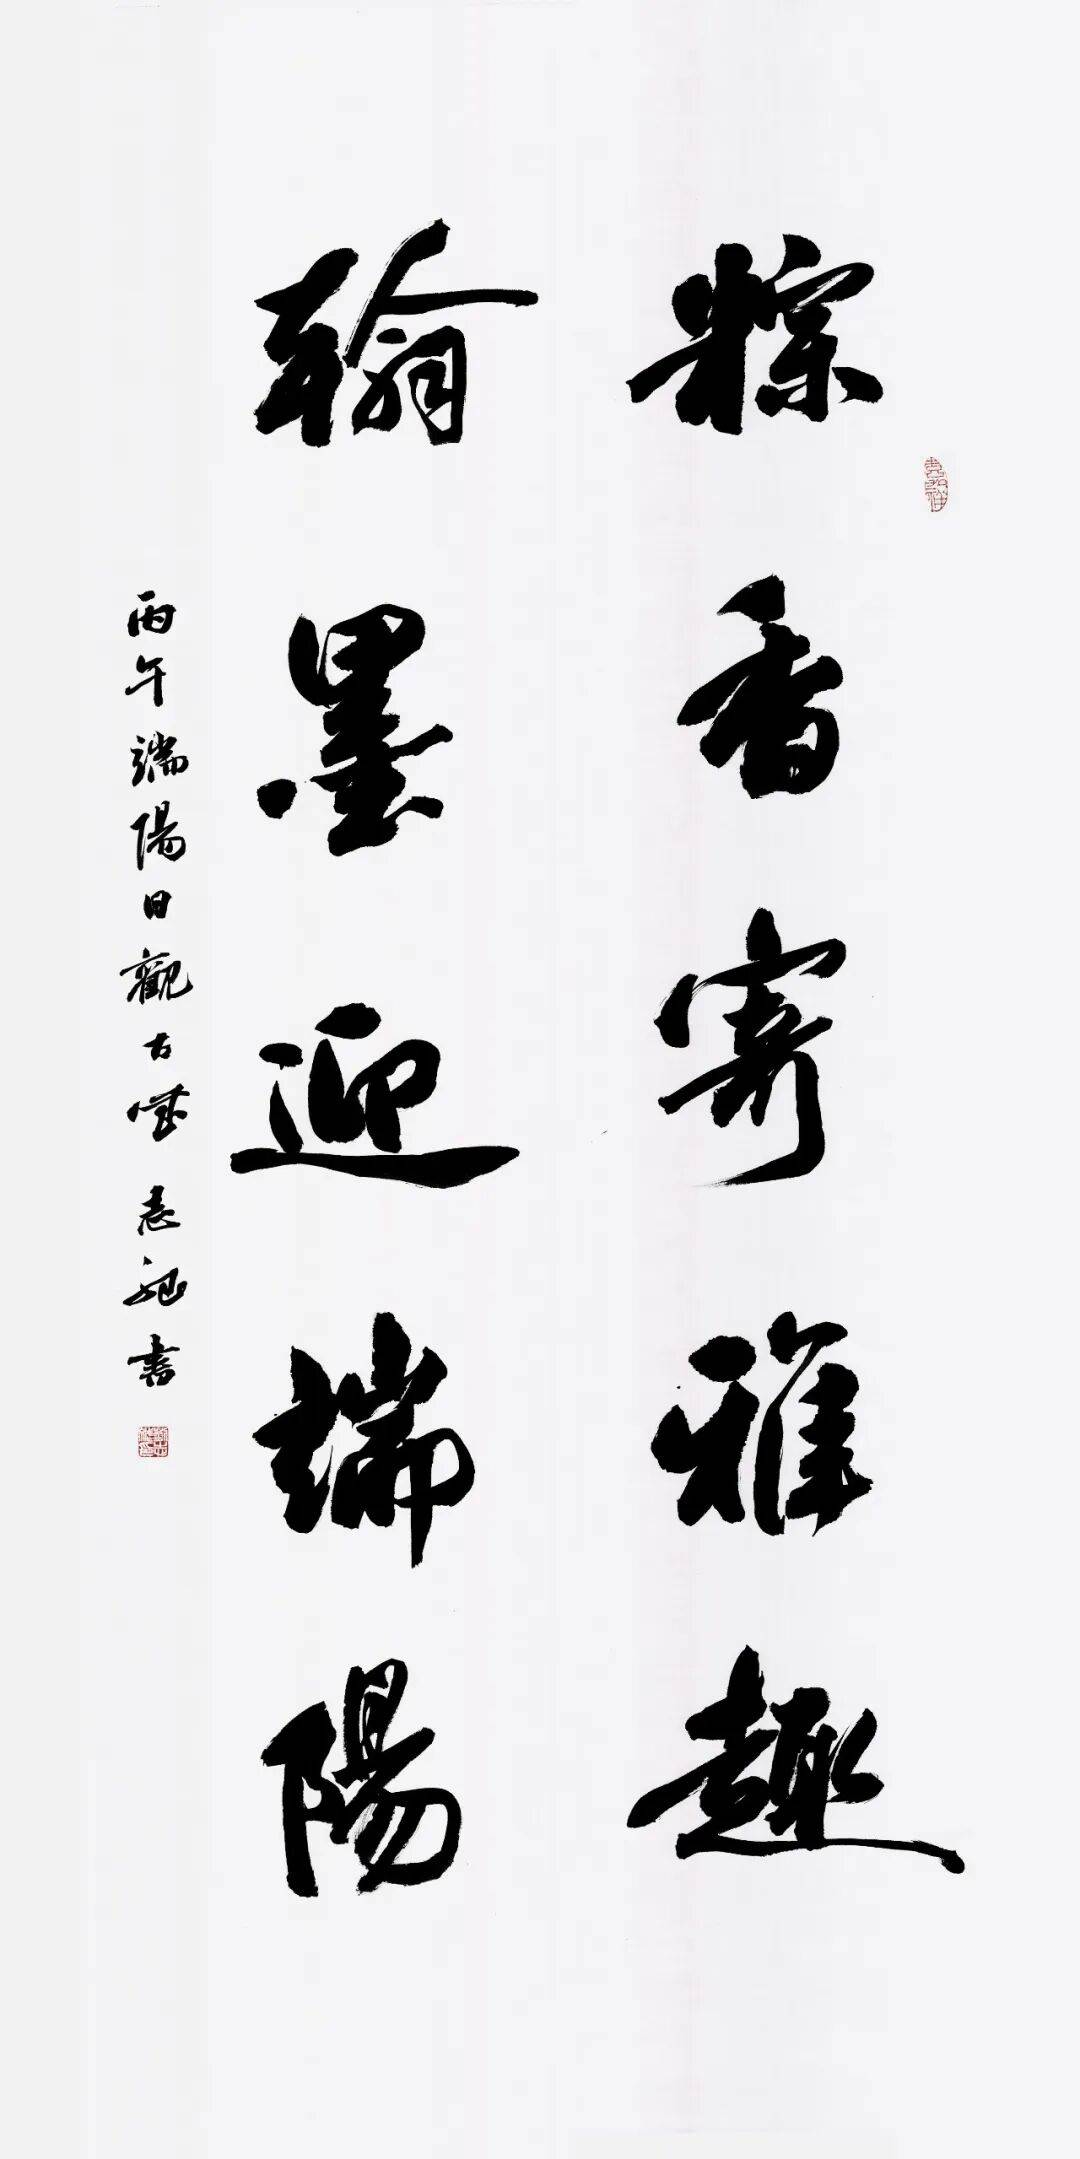 粽香寄雅趣
翰墨迎端陽
丙午端陽日觀古堂志龍書